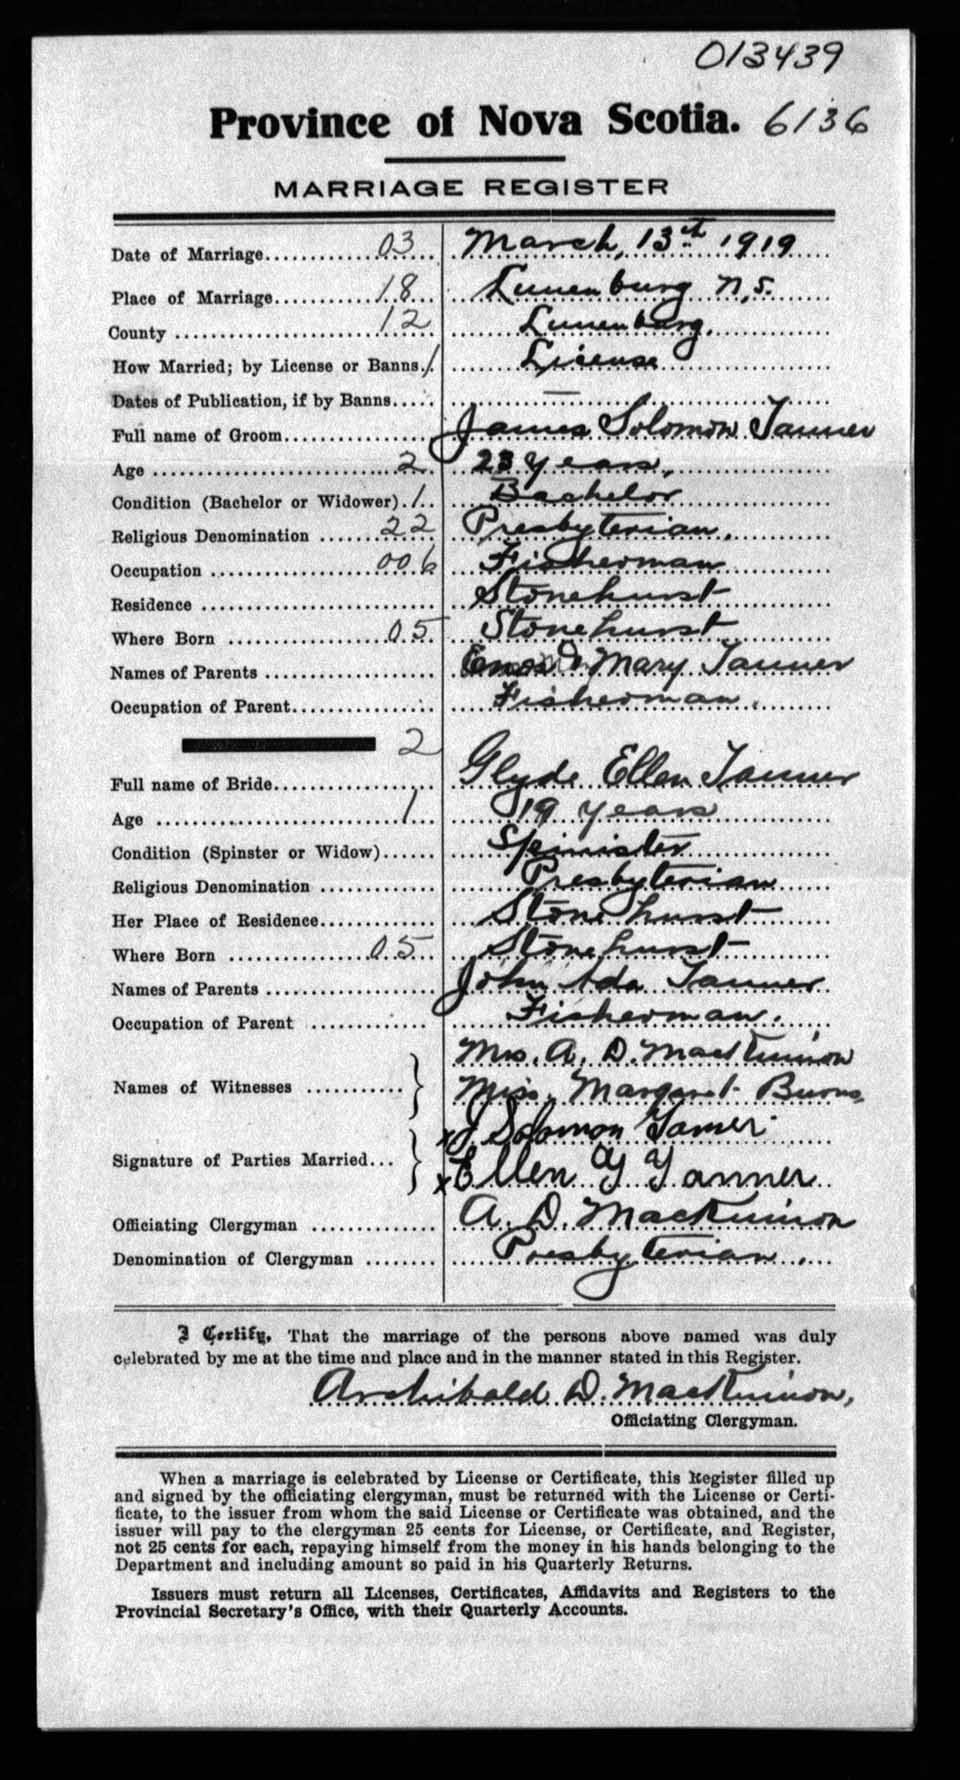 013439
Province of Nova Scotia. 6136
MARRIAGE REGISTER
Date of Marriage 03 March, 13th 1919
Place of Marriage 18 Lunenburg N.S.
County 12 Lunenburg.
How Married; by License or Banns 1 License
Dates of Publication, if by Banns —
Full name of Groom James Solomon Tanner
Age 2 23 years,
Condition (Bachelor or Widower) 1 Bachelor
Religious Denomination 22 Presbyterian,
Occupation 006 Fisherman
Residence Stonehurst
Where Born 05 Stonehurst
Names of Parents Enos Mary Tanner
Occupation of Parent Fisherman.
2
Full name of Bride Glyde Ellen Tanner
Age 1 19 years
Condition (Spinster or Widow) Spinister
Religious Denomination Presbyterian
Her Place of Residence Stonehurst
Where Born 05 Stonehurst
Names of Parents John Ada Tanner
Occupation of Parent Fisherman.
Mrs. A. D. MacKinnon
Names of Witnesses Miss. Margaret Burns,
x J Solomon Tanner
Signature of Parties Married... x Ellen G Tanner
Officiating Clergyman A. D. MacKinnon
Denomination of Clergyman Presbyterian.
I Certify, That the marriage of the persons above named was duly
celebrated by me at the time and place and in the manner stated in this Register.
Archibald D. MacKinnon,
Officiating Clergyman.
When a marriage is celebrated by License or Certificate, this Register filled up
and signed by the officiating clergyman, must be returned with the License or Certi-
ficate, to the issuer from whom the said License or Certificate was obtained, and the
issuer will pay to the clergyman 25 cents for License, or Certificate, and Register,
not 25 cents for each, repaying himself from the money in his hands belonging to the
Department and including amount so paid in his Quarterly Returns.
Issuers must return all Licenses, Certificates, Affidavits and Registers to the
Provincial Secretary's Office, with their Quarterly Accounts.